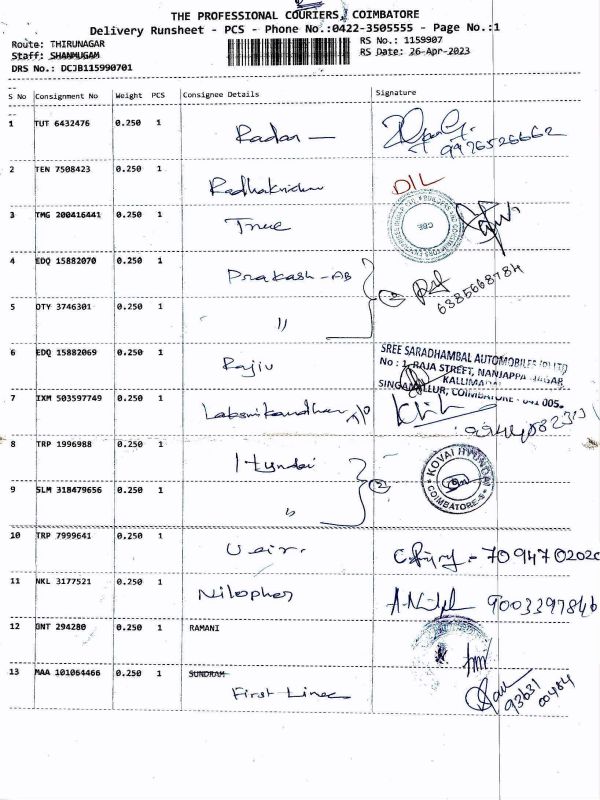 THE PROFESSIONAL COURIERS, COIMBATORE
Delivery Runsheet - PCS - Phone No.:0422-3505555 - Page No.:1
Route: THIRUNAGAR RS No.: 1159907
Staff: SHANMUGAM RS Date: 26-Apr-2023
DRS No.: DCJB115990701
S No Consignment No Weight PCS Consignee Details Signature
1 TUT 6432476 0.250 1 Radar — 9976526662
2 TEN 7508423 0.250 1 Radhakrishnan DIL
3 TMG 200416441 0.250 1 True
CBE
4 EDQ 15882070 0.250 1 Prakash - AB 2
6385668784
5 DTY 3746301 0.250 1 "
6 EDQ 15882069 0.250 1 Rajiv
SREE SARADHAMBAL AUTOMOBILES (P) LTD
No : 1, RAJA STREET, NANJAPPA NAGAR
KALLIMADAI
SINGANALLUR, COIMBATORE - 641 005.
7 IXM 503597749 0.250 1
8 TRP 1996988 0.250 1 Hyundai 2
KOVAI HYUNDAI
COIMBATORE-5
9 SLM 318479656 0.250 1 "
10 TRP 7999641 0.250 1 - 7094702020
11 NKL 3177521 0.250 1 Nilopher 9003397846
12 GNT 294280 0.250 1 RAMANI
13 MAA 101064466 0.250 1 SUNDRAM
First Line
93631
00484